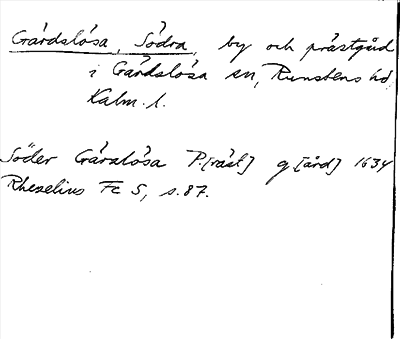 Gårdslösa, Södra, by och prästgård
i Gårdslösa sn, Runstens hd,
Kalm. l.
Söder Gårslösa P.[räst] g[ård] 1634
Rhezelius Fc 5, s. 87.